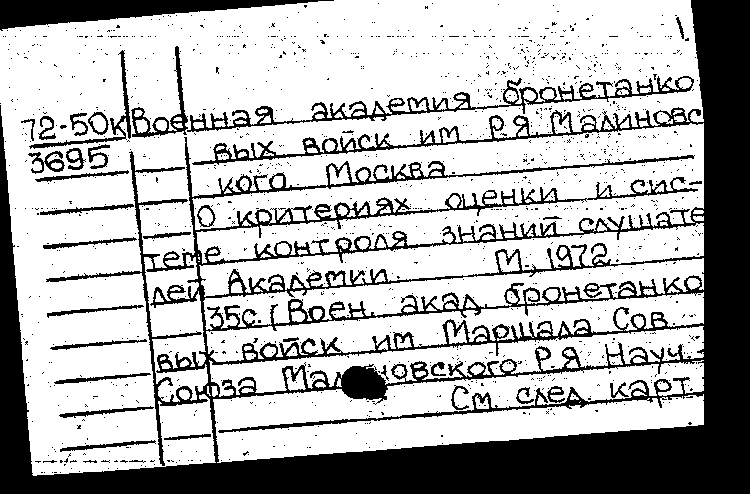 1
72-50к Военная академия бронетанко
3695 вых войск им Р.Я. Малиновс
кого. Москва.
О критериях оценки и сис-
теме контроля знаний слушате
лей Академии. М., 1972.
35с. (Воен. акад. бронетанко
вых войск им. Маршала Сов.
Союза Малиновского Р.Я. Науч.-
См. след. карт.